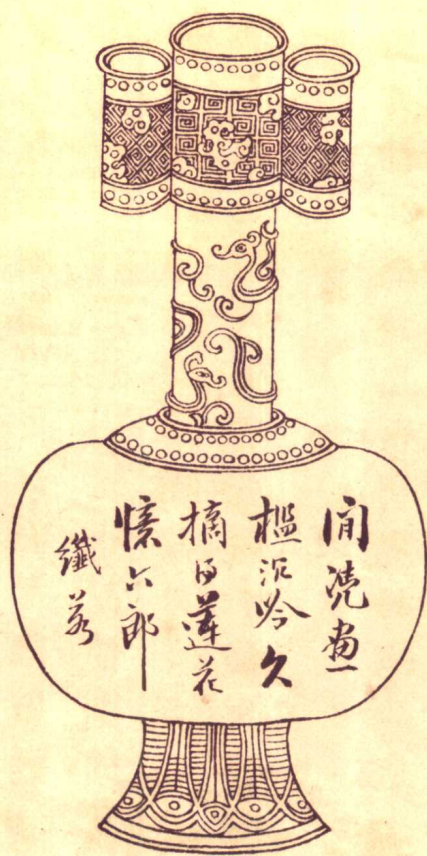 閒凭畫
檻沉吟久
摘得蓮花
憶六郎
纖若